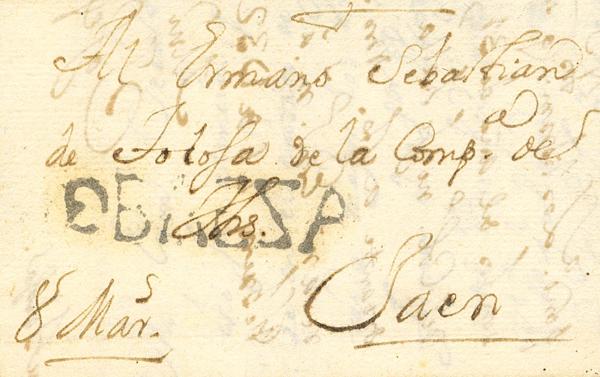 Al Ermano Sebastian
de Tolosa de la Comp.ª de
Jhs.
8 Mar.ˢ Jaen